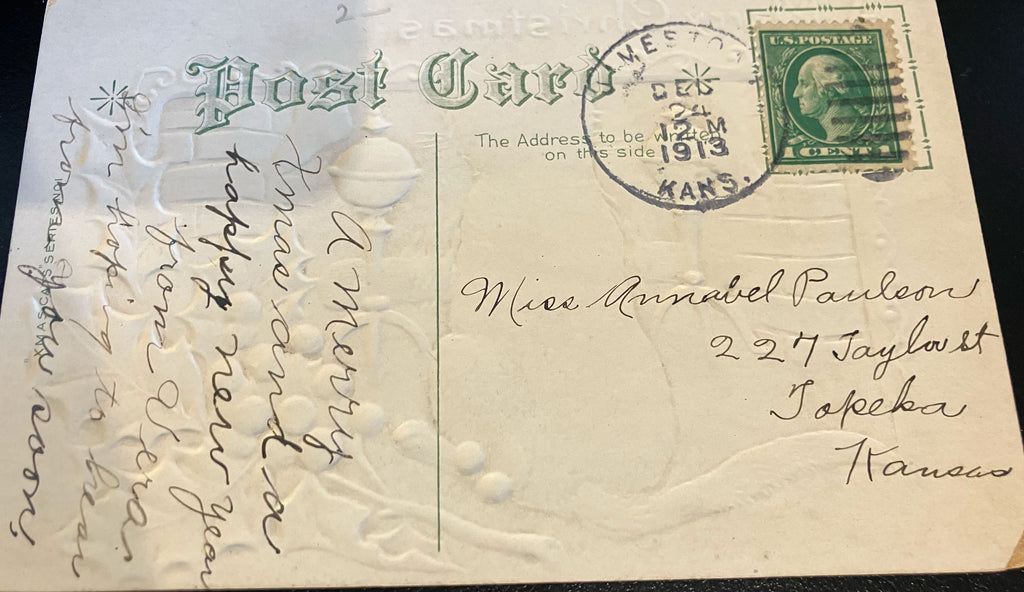 2
Post Card
The Address to be written
on this side
DEC
24
12 M
1913
KANS.
U.S. POSTAGE
1 CENT 1
Miss Annabel Paulson
227 Taylor st
Topeka
Kansas
A Merry
Xmas and a
happy new year
from Vera
I'm hoping to hear
from you soon.
"XMAS CAPS" SERIES NO 1